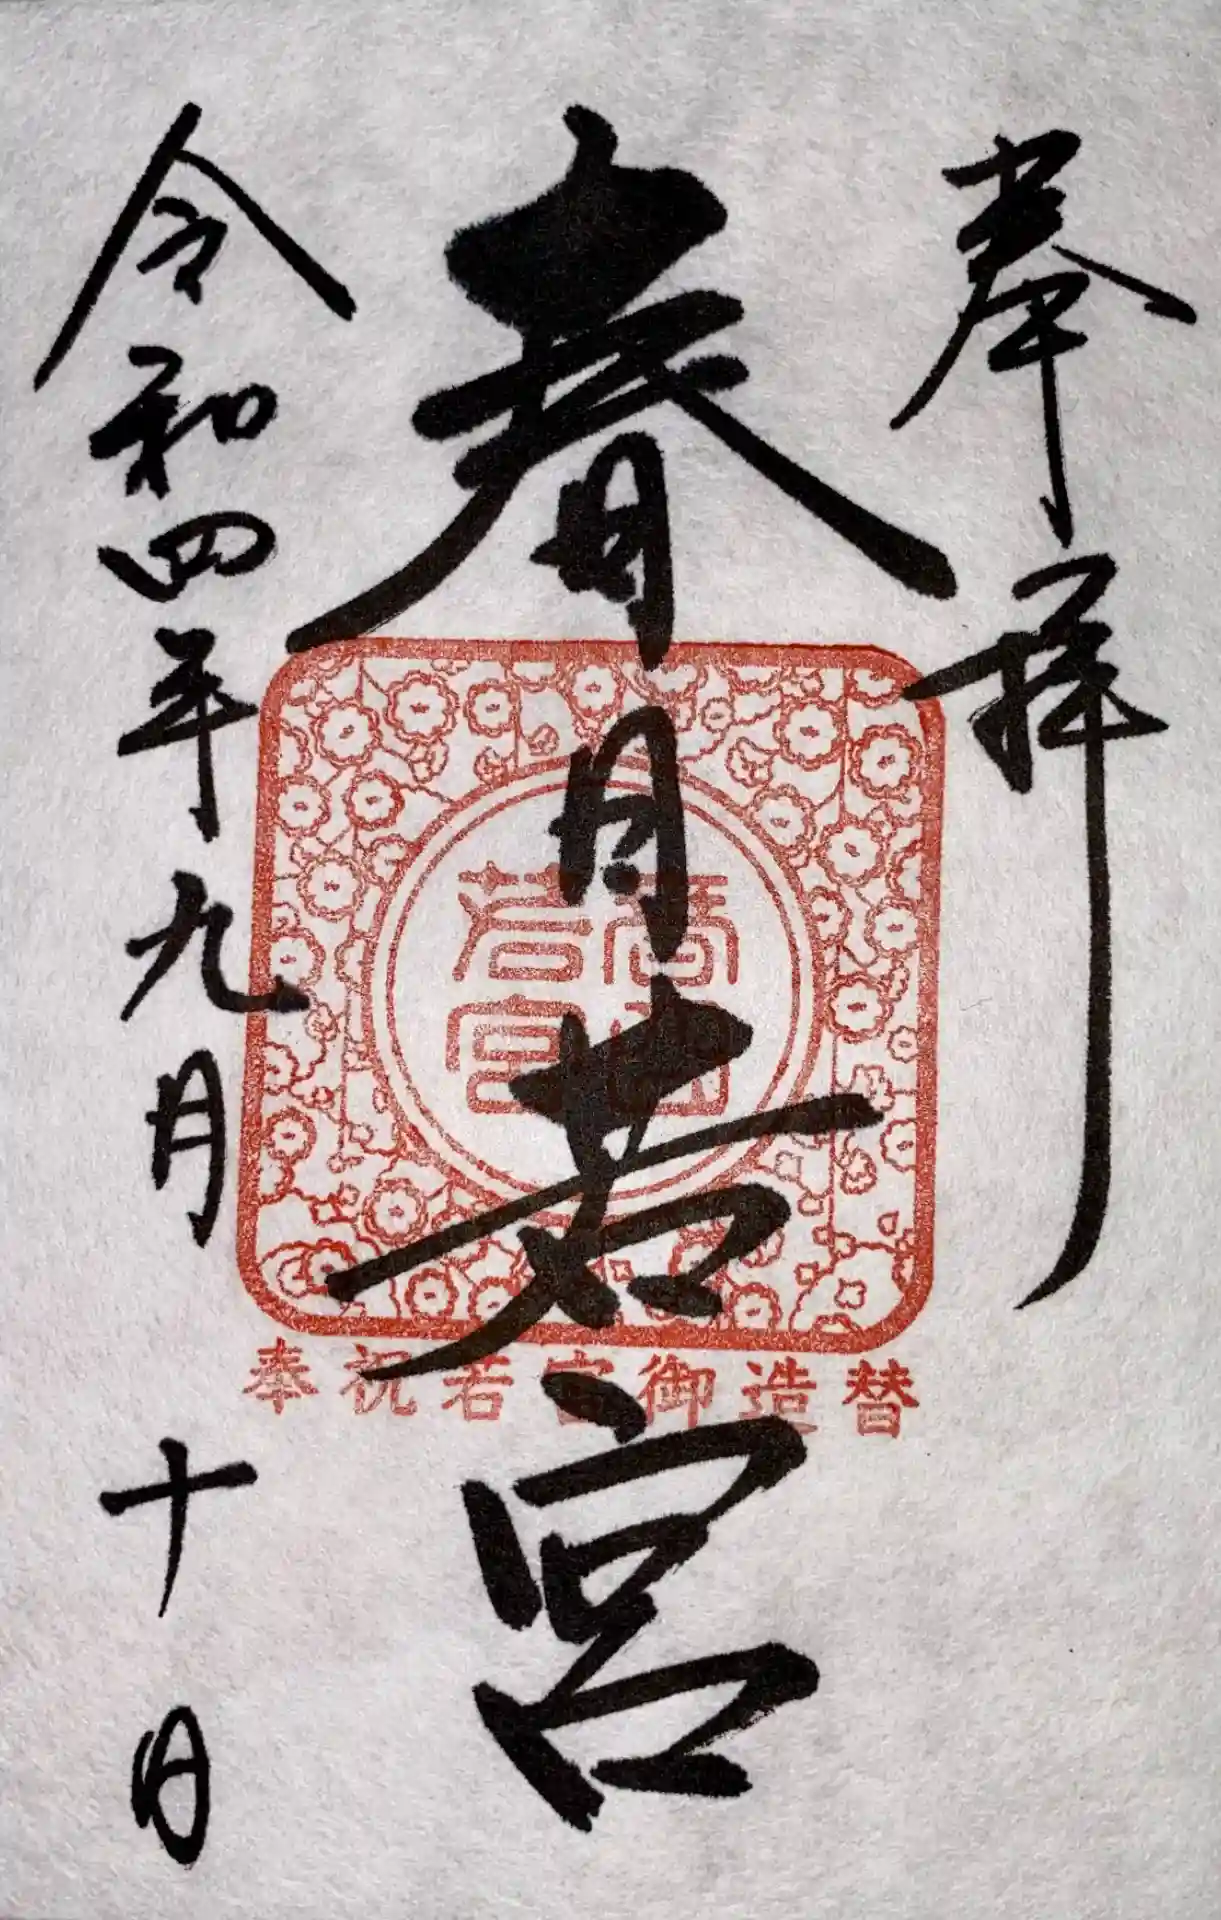 奉拝
春日若宮
令和四年九月十日
春日若宮
奉祝若宮御造替